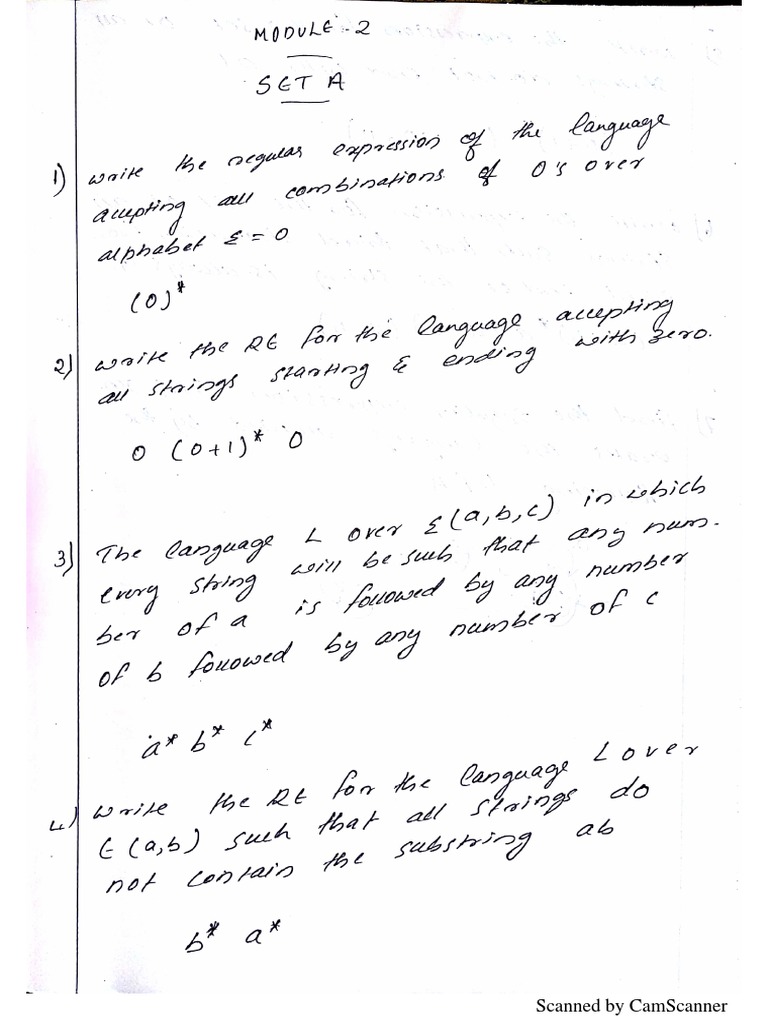 MODULE-2
SET A
1) write the regular expression of the language
accepting all combinations of 0's over
alphabet Σ = 0
(0)*
2) write the RE for the language accepting
all strings starting & ending with zero.
0 (0+1)* 0
3) The language L over Σ(a,b,c) in which
every string will be such that any num-
ber of a is followed by any number
of b followed by any number of c
a* b* c*
4) write the RE for the language L over
Σ(a,b) such that all strings do
not contain the substring ab
b* a*
Scanned by CamScanner